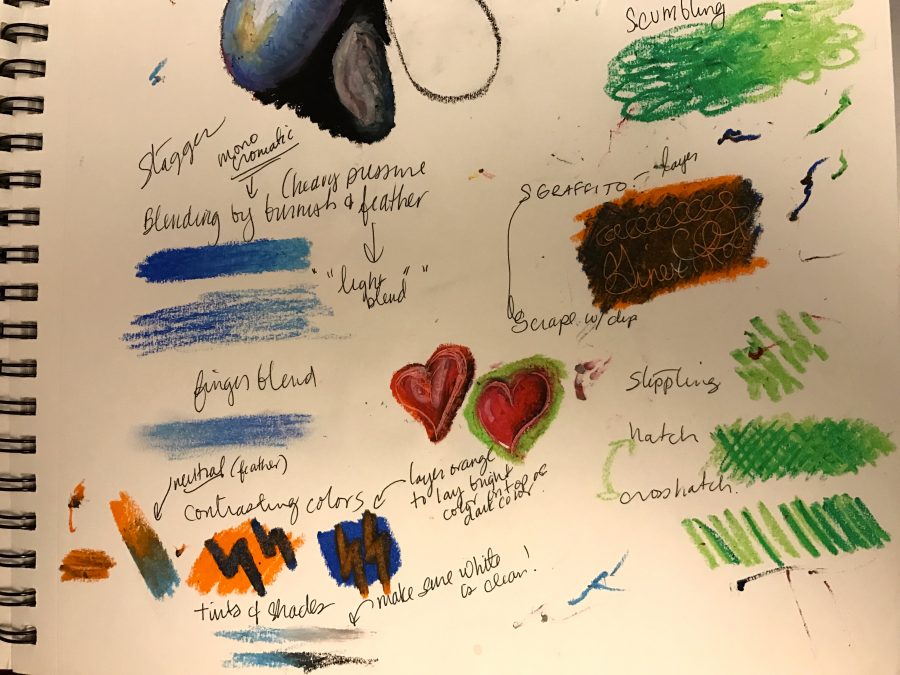 Scumbling
Stagger
mono
cromatic
(heavy pressure
Blending by burnish & feather
"light
blend"
SGRAFFITO - layer
Scrape w/ clip
finger blend
Stippling
hatch
crosshatch.
neutral (feather)
Contrasting colors
layer orange
to lay bright
color on top of
dark color.
tints & shades
make sure white
is clean!